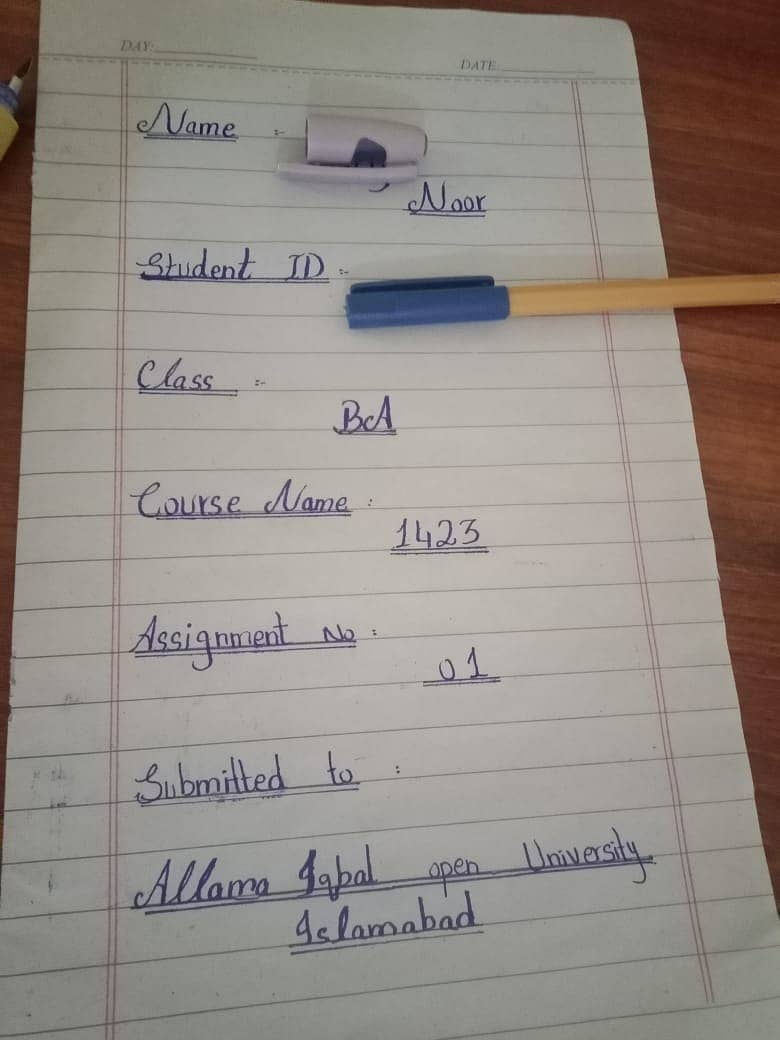 DAY:
DATE:
Name :-
Noor
Student ID :-
Class :-
BA
Course Name :
1423
Assignment No :
01
Submitted to :
Allama Iqbal open University
Islamabad